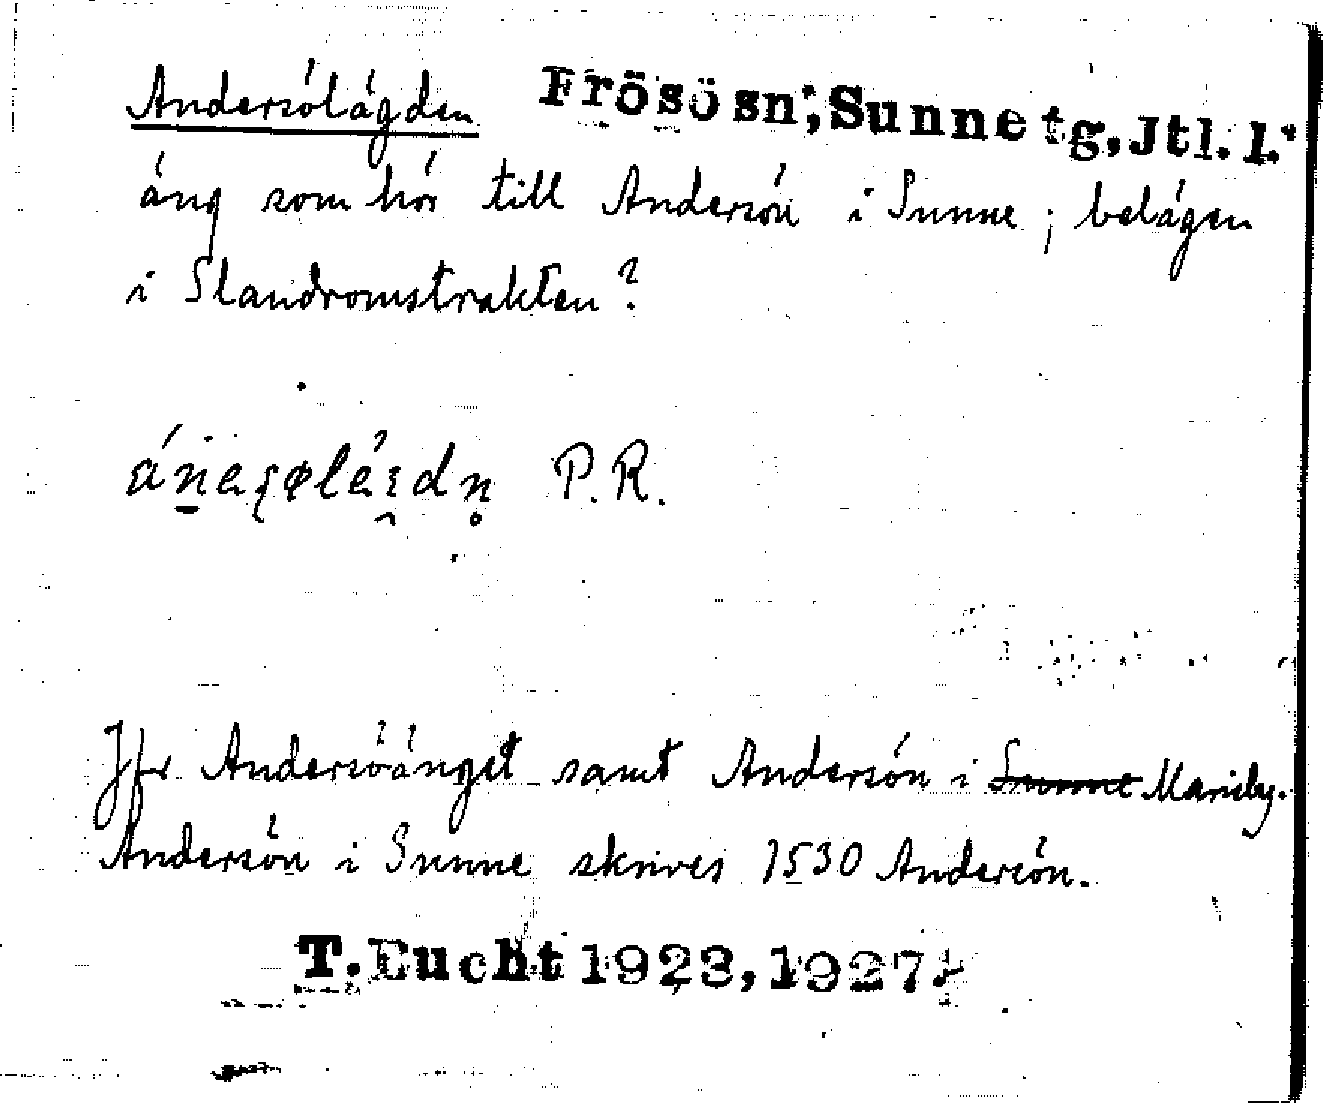 Andersölägden Frösö sn; Sunne tg, Jtl. l.
äng som hör till Andersön i Sunne; belägen
i Slandromstrakten?
P.R.
Jfr Andersöänget samt Andersön i Sunne Marieby.
Andersön i Sunne skrives 1530 Andersön.
T. Bucht 1923, 1927.